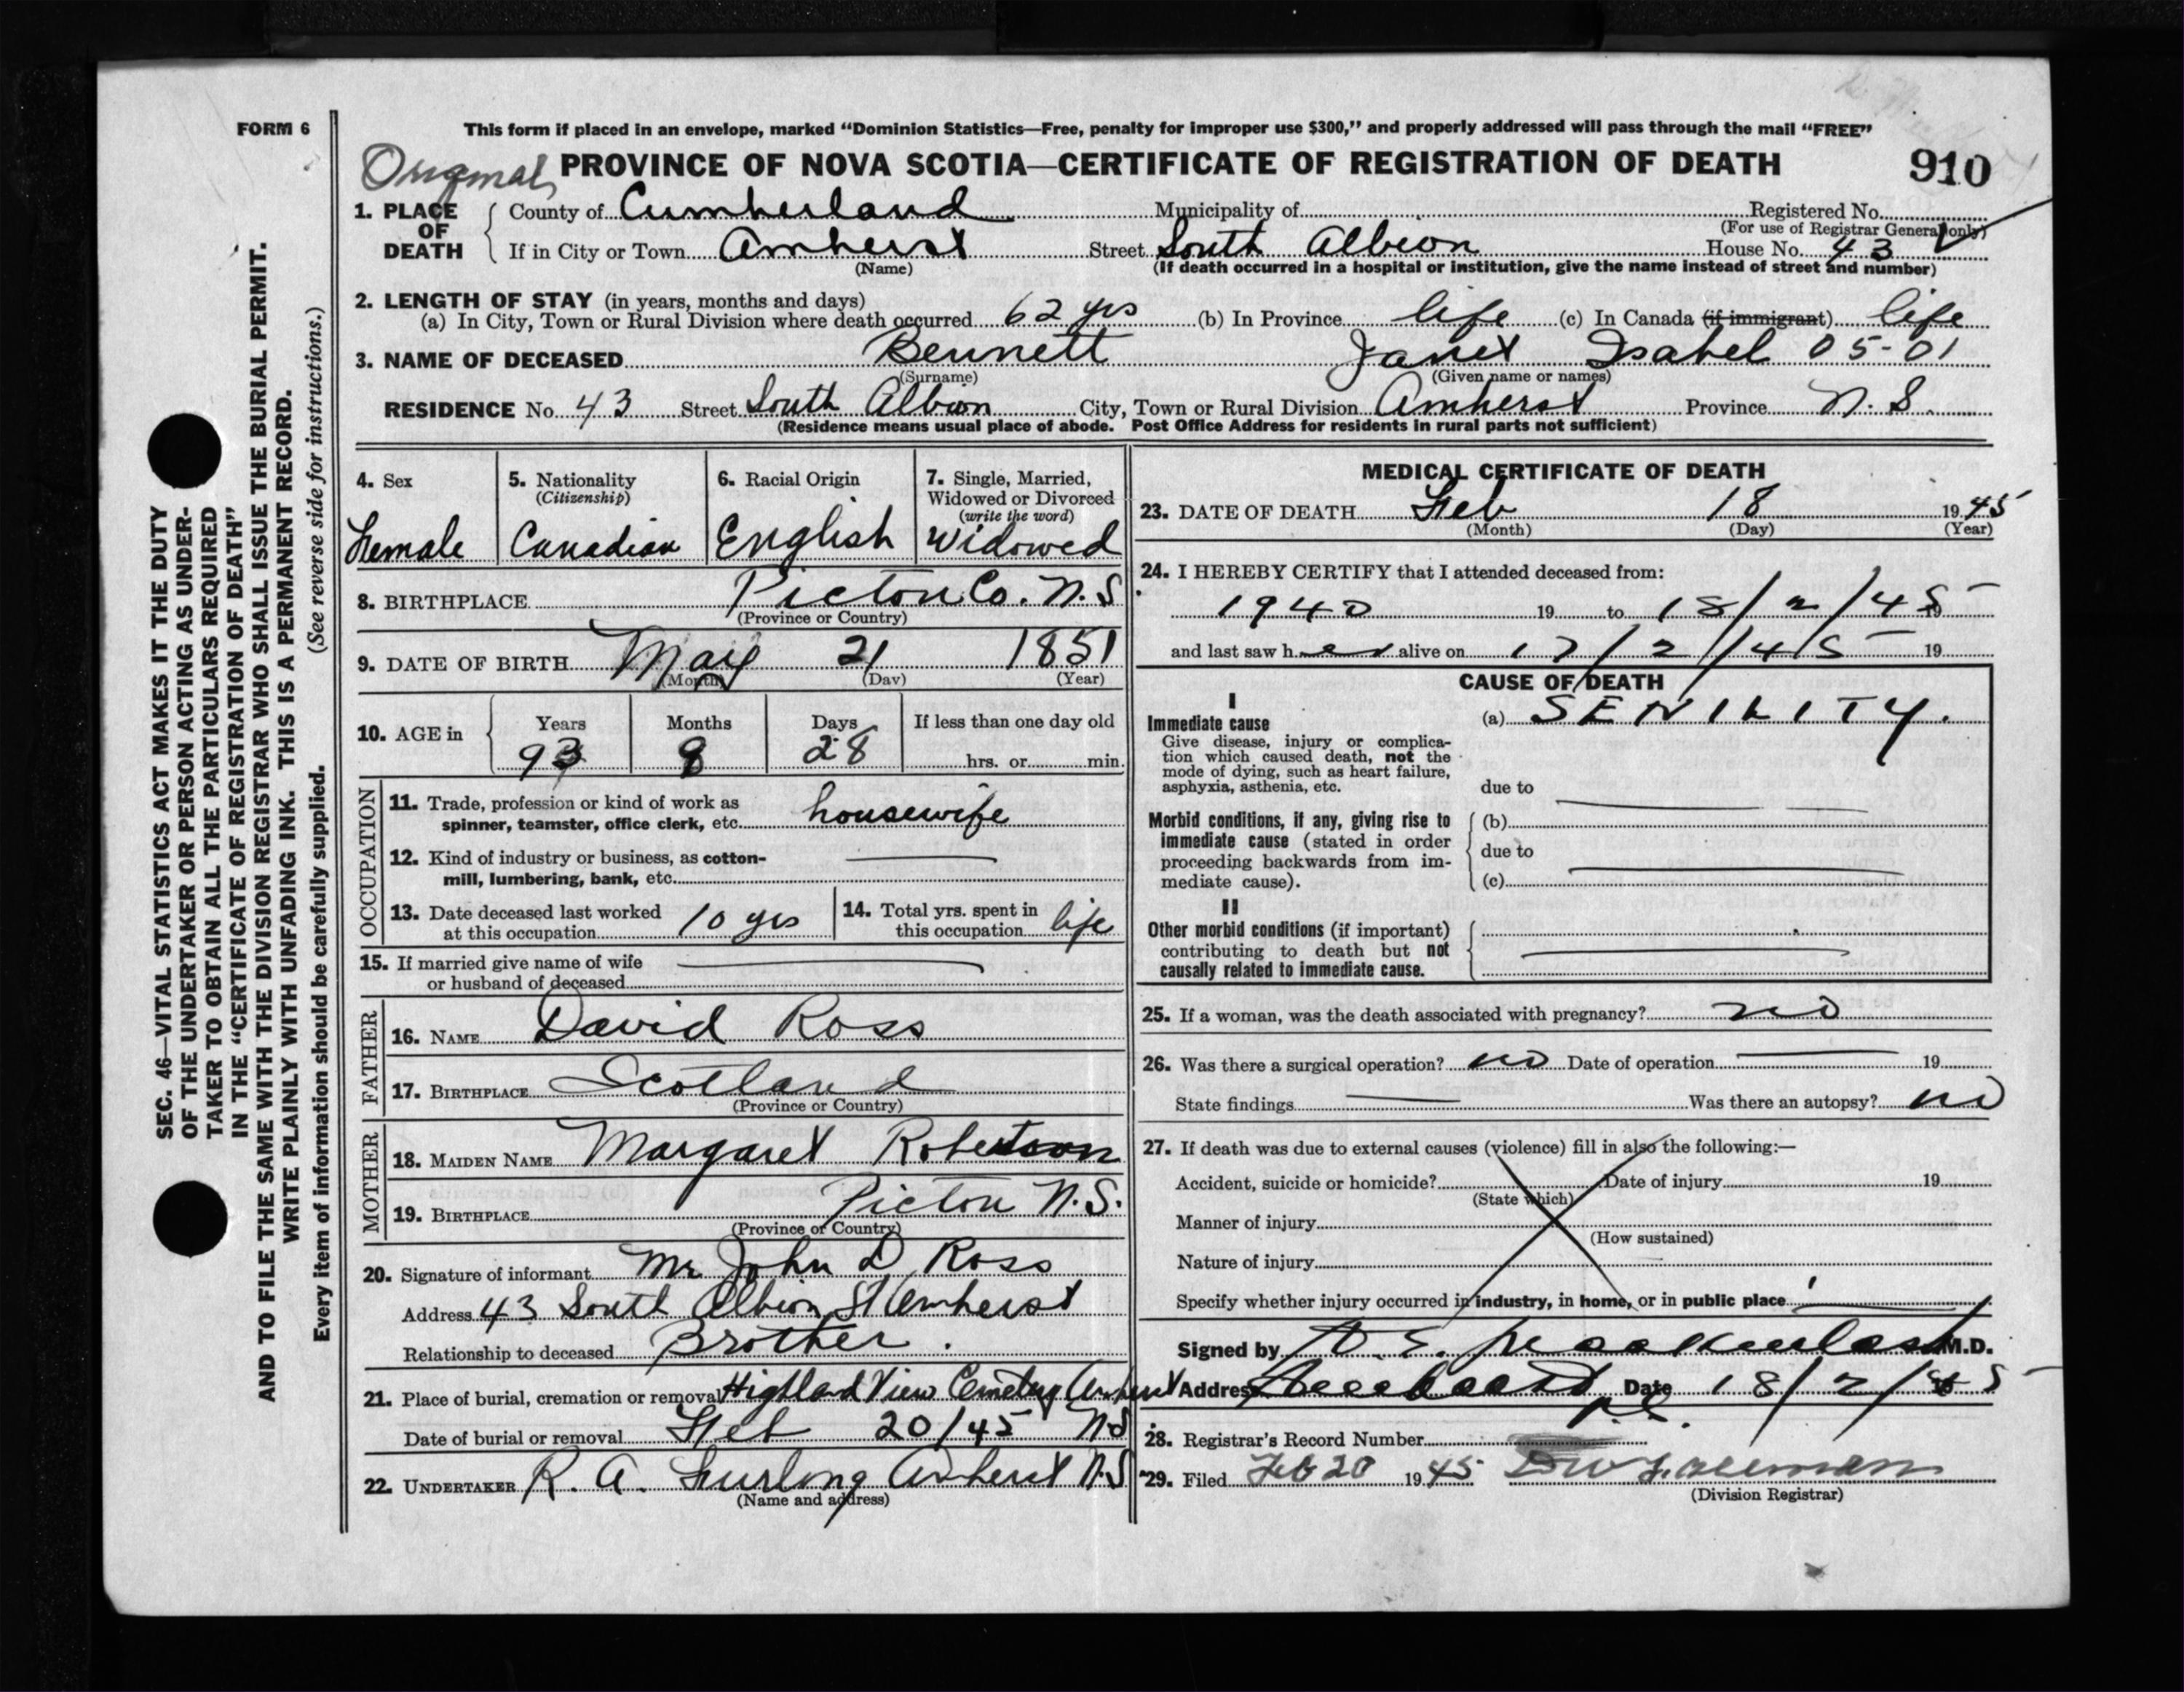 FORM 6
This form if placed in an envelope, marked “Dominion Statistics—Free, penalty for improper use $300,” and properly addressed will pass through the mail “FREE”
Original PROVINCE OF NOVA SCOTIA—CERTIFICATE OF REGISTRATION OF DEATH 910
1. PLACE OF DEATH County of Cumberland Municipality of Registered No.
(For use of Registrar General only)
If in City or Town Amherst Street South Albion House No. 43
(Name) (If death occurred in a hospital or institution, give the name instead of street and number)
2. LENGTH OF STAY (in years, months and days)
(a) In City, Town or Rural Division where death occurred 62 yrs (b) In Province life (c) In Canada (if immigrant) life
3. NAME OF DECEASED Bennett Janet Isabel 05-01
(Surname) (Given name or names)
RESIDENCE No. 43 Street South Albion City, Town or Rural Division Amherst Province N.S.
(Residence means usual place of abode. Post Office Address for residents in rural parts not sufficient)
SEC. 46—VITAL STATISTICS ACT MAKES IT THE DUTY
OF THE UNDERTAKER OR PERSON ACTING AS UNDER-
TAKER TO OBTAIN ALL THE PARTICULARS REQUIRED
IN THE “CERTIFICATE OF REGISTRATION OF DEATH”
AND TO FILE THE SAME WITH THE DIVISION REGISTRAR WHO SHALL ISSUE THE BURIAL PERMIT.
WRITE PLAINLY WITH UNFADING INK. THIS IS A PERMANENT RECORD.
Every item of information should be carefully supplied. (See reverse side for instructions.)
4. Sex 5. Nationality 6. Racial Origin 7. Single, Married,
(Citizenship) Widowed or Divorced
(write the word)
Female Canadian English Widowed
8. BIRTHPLACE Pictou Co. N.S
(Province or Country)
9. DATE OF BIRTH May 21 1851
(Month) (Day) (Year)
10. AGE in Years Months Days If less than one day old
93 8 28 hrs. or min.
OCCUPATION
11. Trade, profession or kind of work as
spinner, teamster, office clerk, etc. housewife
12. Kind of industry or business, as cotton-
mill, lumbering, bank, etc.
13. Date deceased last worked 14. Total yrs. spent in
at this occupation 10 yrs this occupation life
15. If married give name of wife
or husband of deceased
FATHER
16. NAME David Ross
17. BIRTHPLACE Scotland
(Province or Country)
MOTHER
18. MAIDEN NAME Margaret Robertson
19. BIRTHPLACE Pictou N.S.
(Province or Country)
20. Signature of informant Mr John D Ross
Address 43 South Albion St Amherst
Relationship to deceased Brother.
21. Place of burial, cremation or removal Highland View Cemetery Amherst
Date of burial or removal Feb 20/45 NS
22. UNDERTAKER R. A. Furlong Amherst N.S
(Name and address)
MEDICAL CERTIFICATE OF DEATH
23. DATE OF DEATH Feb 18 1945
(Month) (Day) (Year)
24. I HEREBY CERTIFY that I attended deceased from:
1940 19 to 18/2/45 19
and last saw her alive on 17/2/45 19
CAUSE OF DEATH
I
Immediate cause (a) SENILITY.
Give disease, injury or complica-
tion which caused death, not the
mode of dying, such as heart failure,
asphyxia, asthenia, etc. due to
Morbid conditions, if any, giving rise to (b)
immediate cause (stated in order
proceeding backwards from im- due to
mediate cause). (c)
II
Other morbid conditions (if important)
contributing to death but not
causally related to immediate cause.
25. If a woman, was the death associated with pregnancy? no
26. Was there a surgical operation? no Date of operation 19
State findings Was there an autopsy? no
27. If death was due to external causes (violence) fill in also the following:—
Accident, suicide or homicide? Date of injury 19
(State which)
Manner of injury
(How sustained)
Nature of injury
Specify whether injury occurred in industry, in home, or in public place
Signed by D. E. M.D.
Address Date 18/2/45
N.S.
28. Registrar's Record Number
29. Filed Feb 20 1945
(Division Registrar)